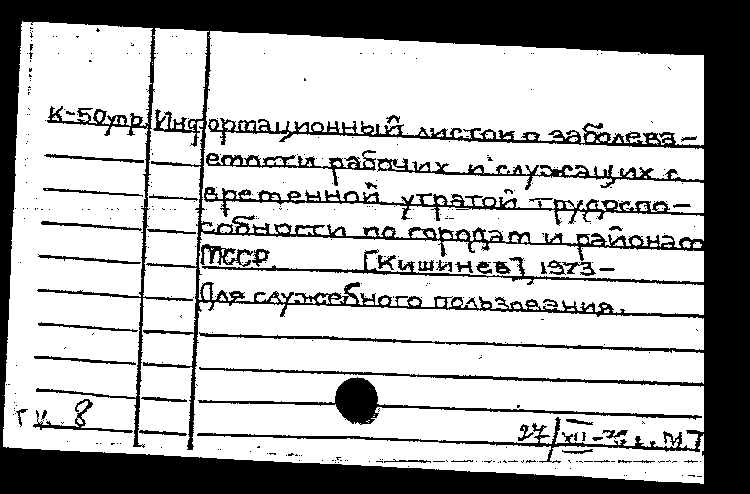 К-50упр. Информационный листок о заболева-
емости рабочих и служащих с
временной утратой трудоспо-
собности по городам и районам
МССР. [Кишинев], 1973-
Для служебного пользования.
т.к. 8
27/XII-76 г. М.Т.